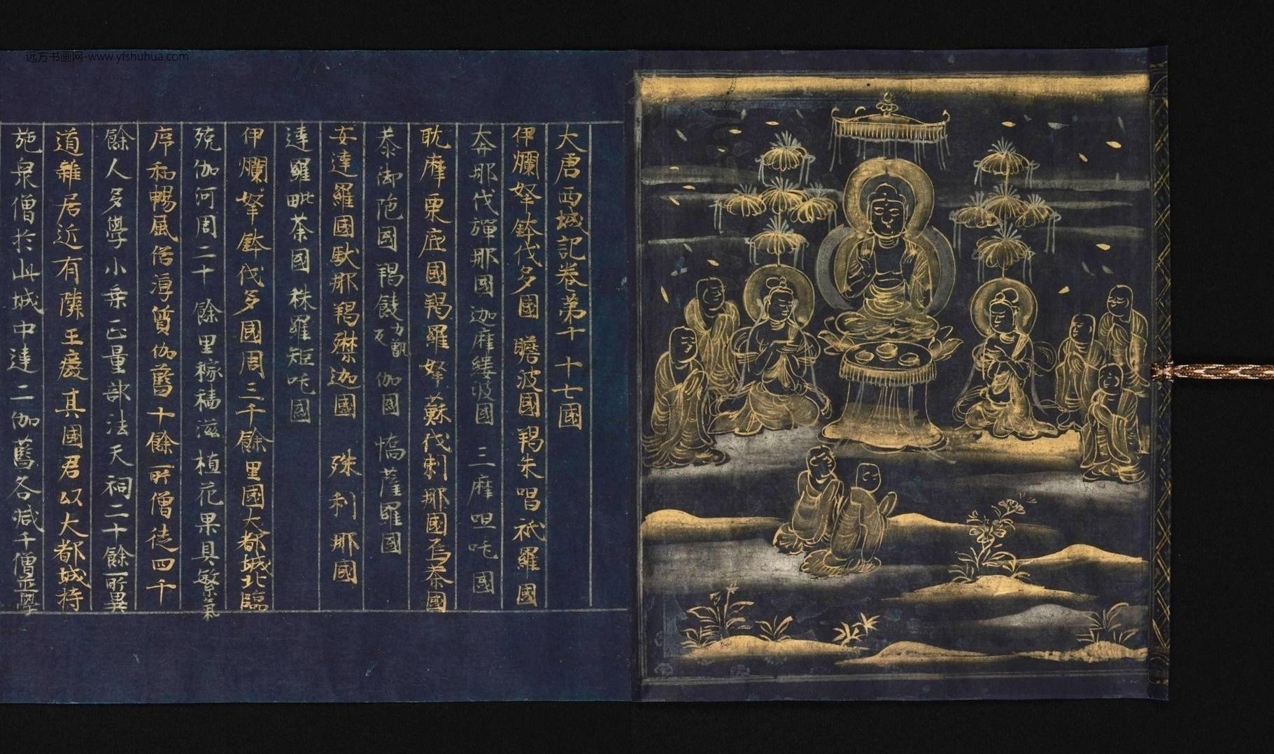 远方书画网-www.yfshuhua.com
大唐西域記卷苐十 十七國
伊爛拏鉢伐多國 瞻波國 羯朱嗢祇羅國
奔那伐彈那國 迦摩縷波國 三摩呾吒國
耽摩栗底國 羯羅拏蘇伐剌那國 烏荼國
恭御陁國 羯𩜁伽國 憍薩羅國
安達羅國 馱那羯磔迦國 珠利耶國
達羅毗荼國 秣羅矩吒國
伊爛拏鉢伐多國周三千餘里國大都城北臨
殑伽河周二十餘里稼穡滋植花果具繁氣
序和暢風俗淳質伽藍十餘所僧徒四千
餘人多學小乘正量部法天祠二十餘所異
道雜居近有隣王癈其國君以大都城持
施衆僧於此城中建二伽藍各減千僧並學